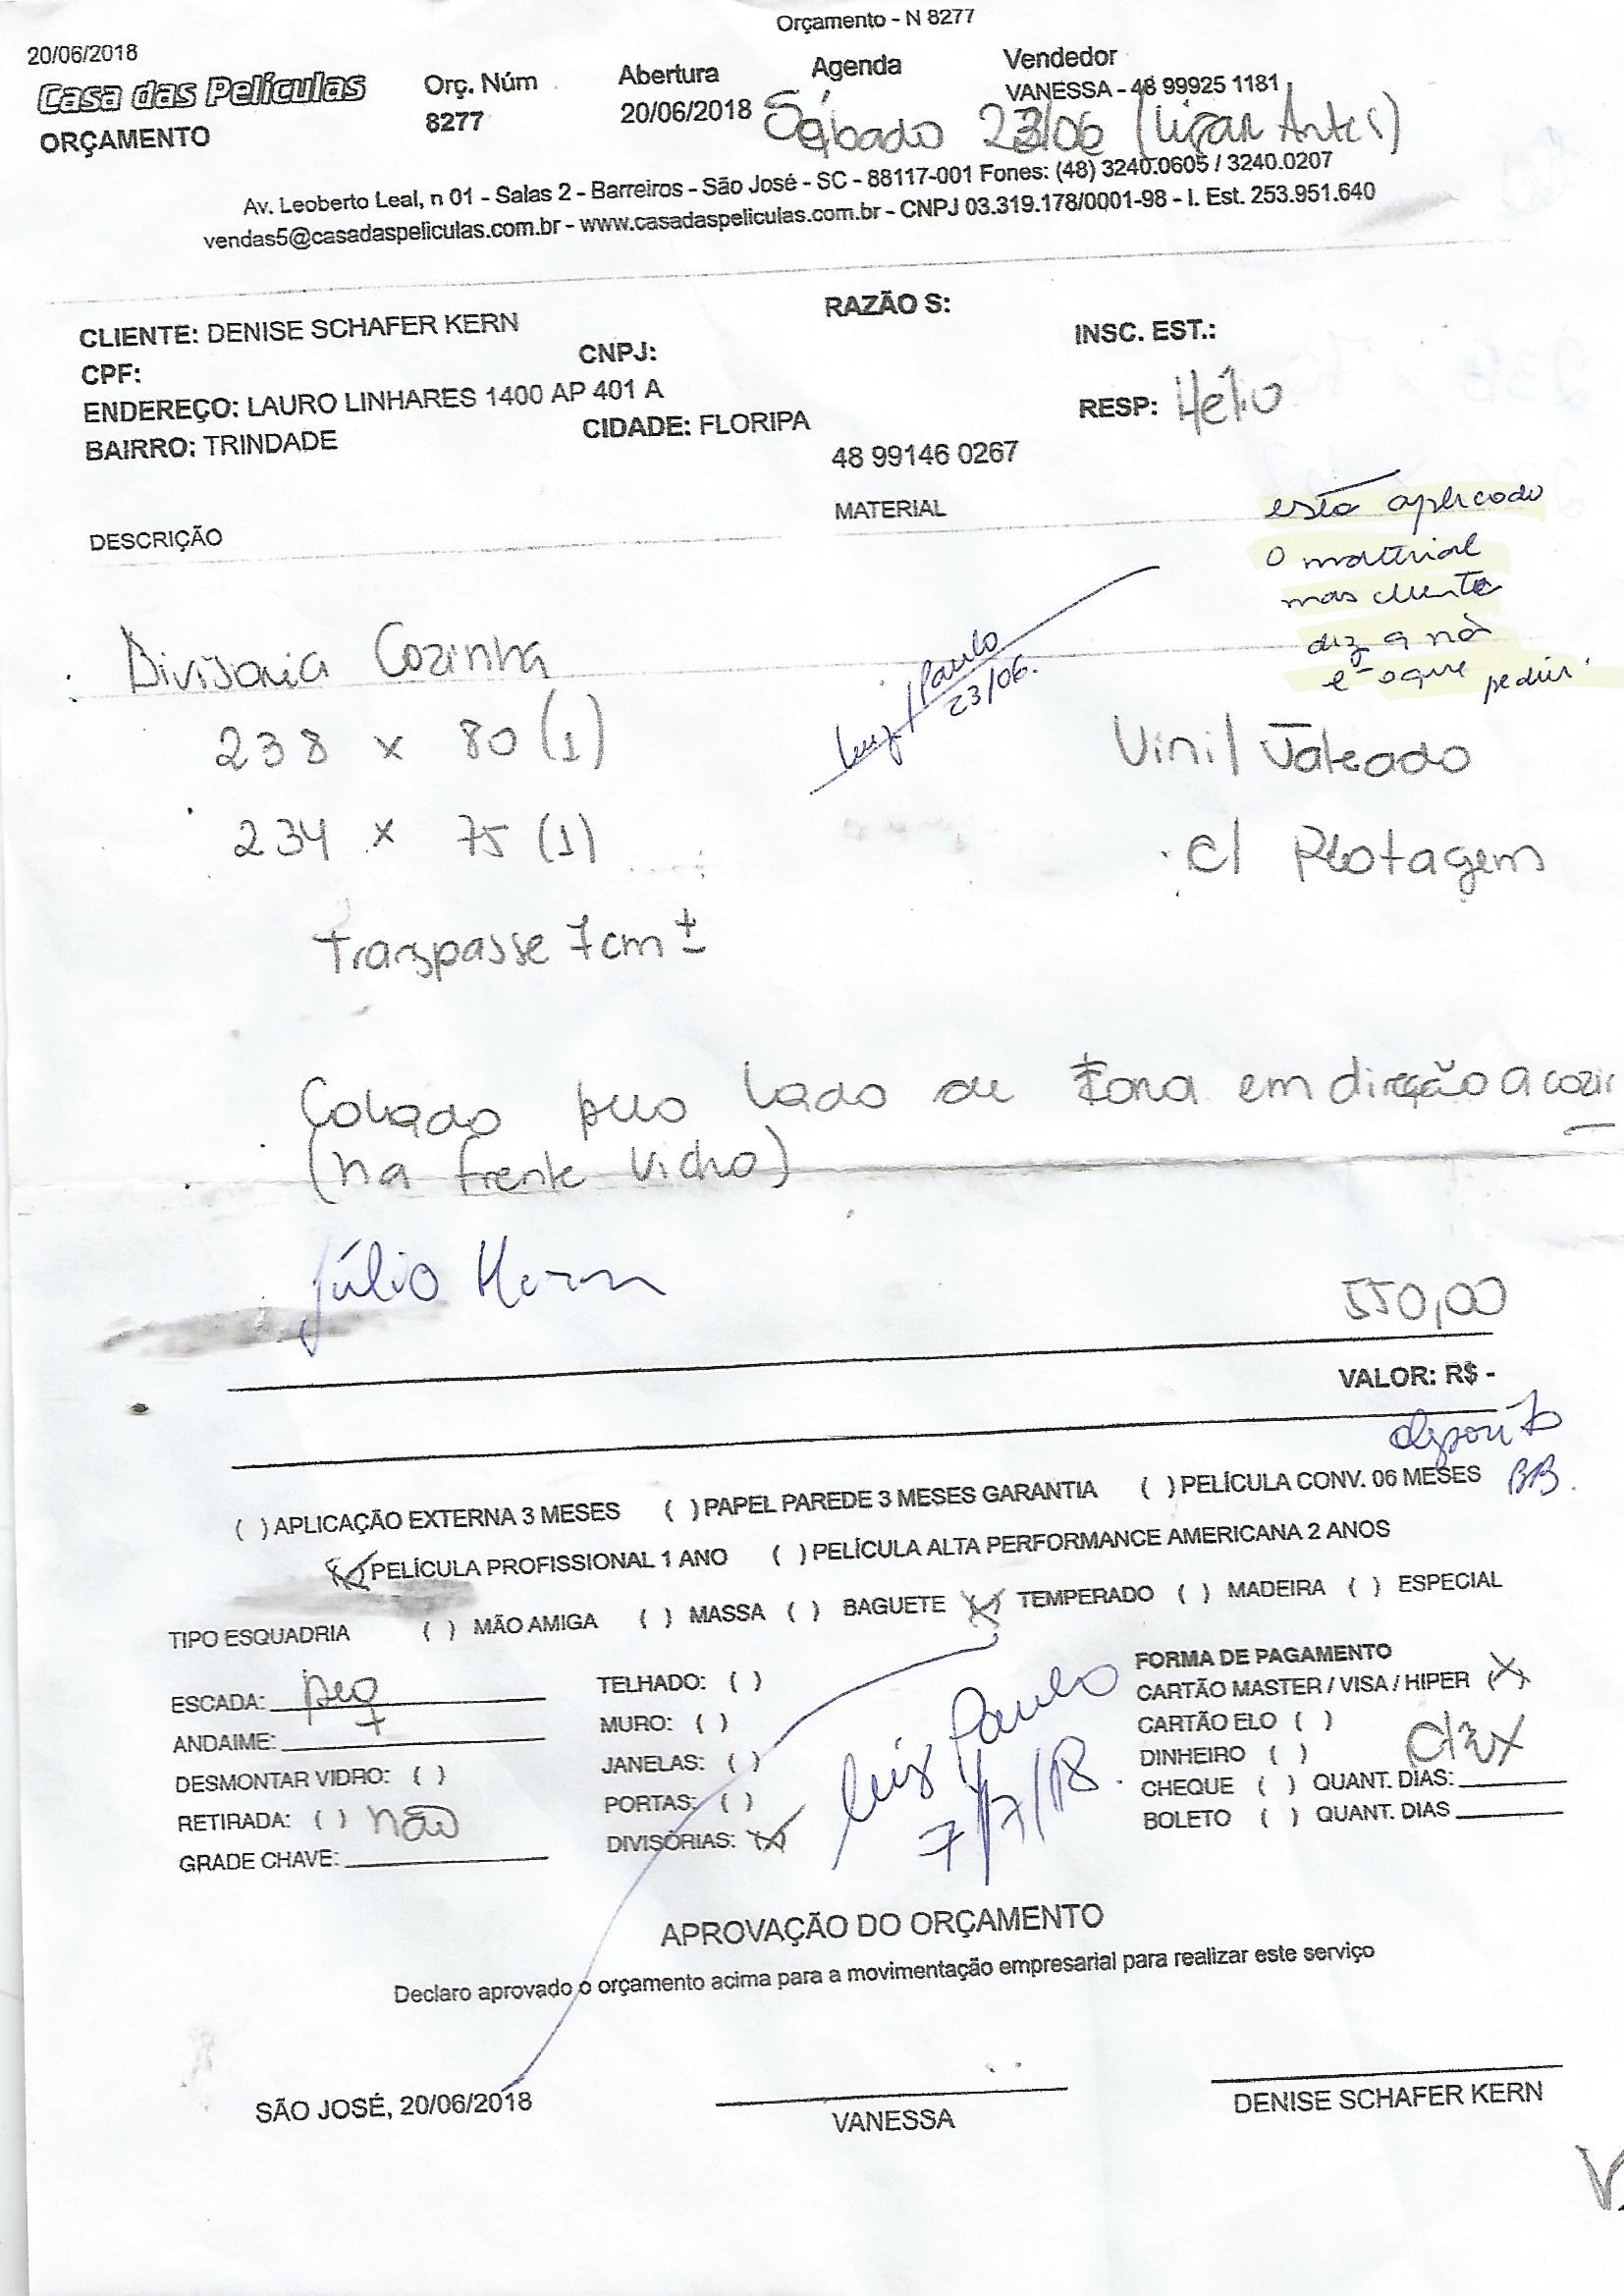 Orçamento - N 8277
20/06/2018
Casa das Películas
ORÇAMENTO
Orç. Núm
8277
Abertura
20/06/2018
Agenda
Sábado 23/06 (Ligar Antes)
Vendedor
VANESSA - 48 99925 1181
Av. Leoberto Leal, n 01 - Salas 2 - Barreiros - São José - SC - 88117-001 Fones: (48) 3240.0605 / 3240.0207
vendas5@casadaspeliculas.com.br - www.casadaspeliculas.com.br - CNPJ 03.319.178/0001-98 - I. Est. 253.951.640
CLIENTE: DENISE SCHAFER KERN
RAZÃO S:
CPF:
CNPJ:
INSC. EST.:
ENDEREÇO: LAURO LINHARES 1400 AP 401 A
RESP: Hélio
BAIRRO: TRINDADE
CIDADE: FLORIPA
48 99146 0267
DESCRIÇÃO
MATERIAL
está aplicado
o material
mas cliente
diz q não
é o que pediu
Divisoria Cozinha
Luiz / Paulo
23/06.
238 x 80 (1)
Vinil Jateado
234 x 75 (1)
c/ Plotagem
Tranzpasse 7cm ±
Colado pelo lado de fora em direção a cozin
(na frente vidro)
Júlio Kern
550,00
VALOR: R$ -
deposito
BB.
( ) APLICAÇÃO EXTERNA 3 MESES ( ) PAPEL PAREDE 3 MESES GARANTIA ( ) PELÍCULA CONV. 06 MESES
(X) PELÍCULA PROFISSIONAL 1 ANO ( ) PELÍCULA ALTA PERFORMANCE AMERICANA 2 ANOS
TIPO ESQUADRIA ( ) MÃO AMIGA ( ) MASSA ( ) BAGUETE (X) TEMPERADO ( ) MADEIRA ( ) ESPECIAL
ESCADA: peq
ANDAIME:
DESMONTAR VIDRO: ( )
RETIRADA: ( ) não
GRADE CHAVE:
TELHADO: ( )
MURO: ( )
JANELAS: ( )
PORTAS: ( )
DIVISÓRIAS: (X)
Luiz Paulo
7/7/18.
FORMA DE PAGAMENTO
CARTÃO MASTER / VISA / HIPER (X)
CARTÃO ELO ( )
DINHEIRO ( )
CHEQUE ( ) QUANT. DIAS:
BOLETO ( ) QUANT. DIAS
APROVAÇÃO DO ORÇAMENTO
Declaro aprovado o orçamento acima para a movimentação empresarial para realizar este serviço
SÃO JOSÉ, 20/06/2018
VANESSA
DENISE SCHAFER KERN